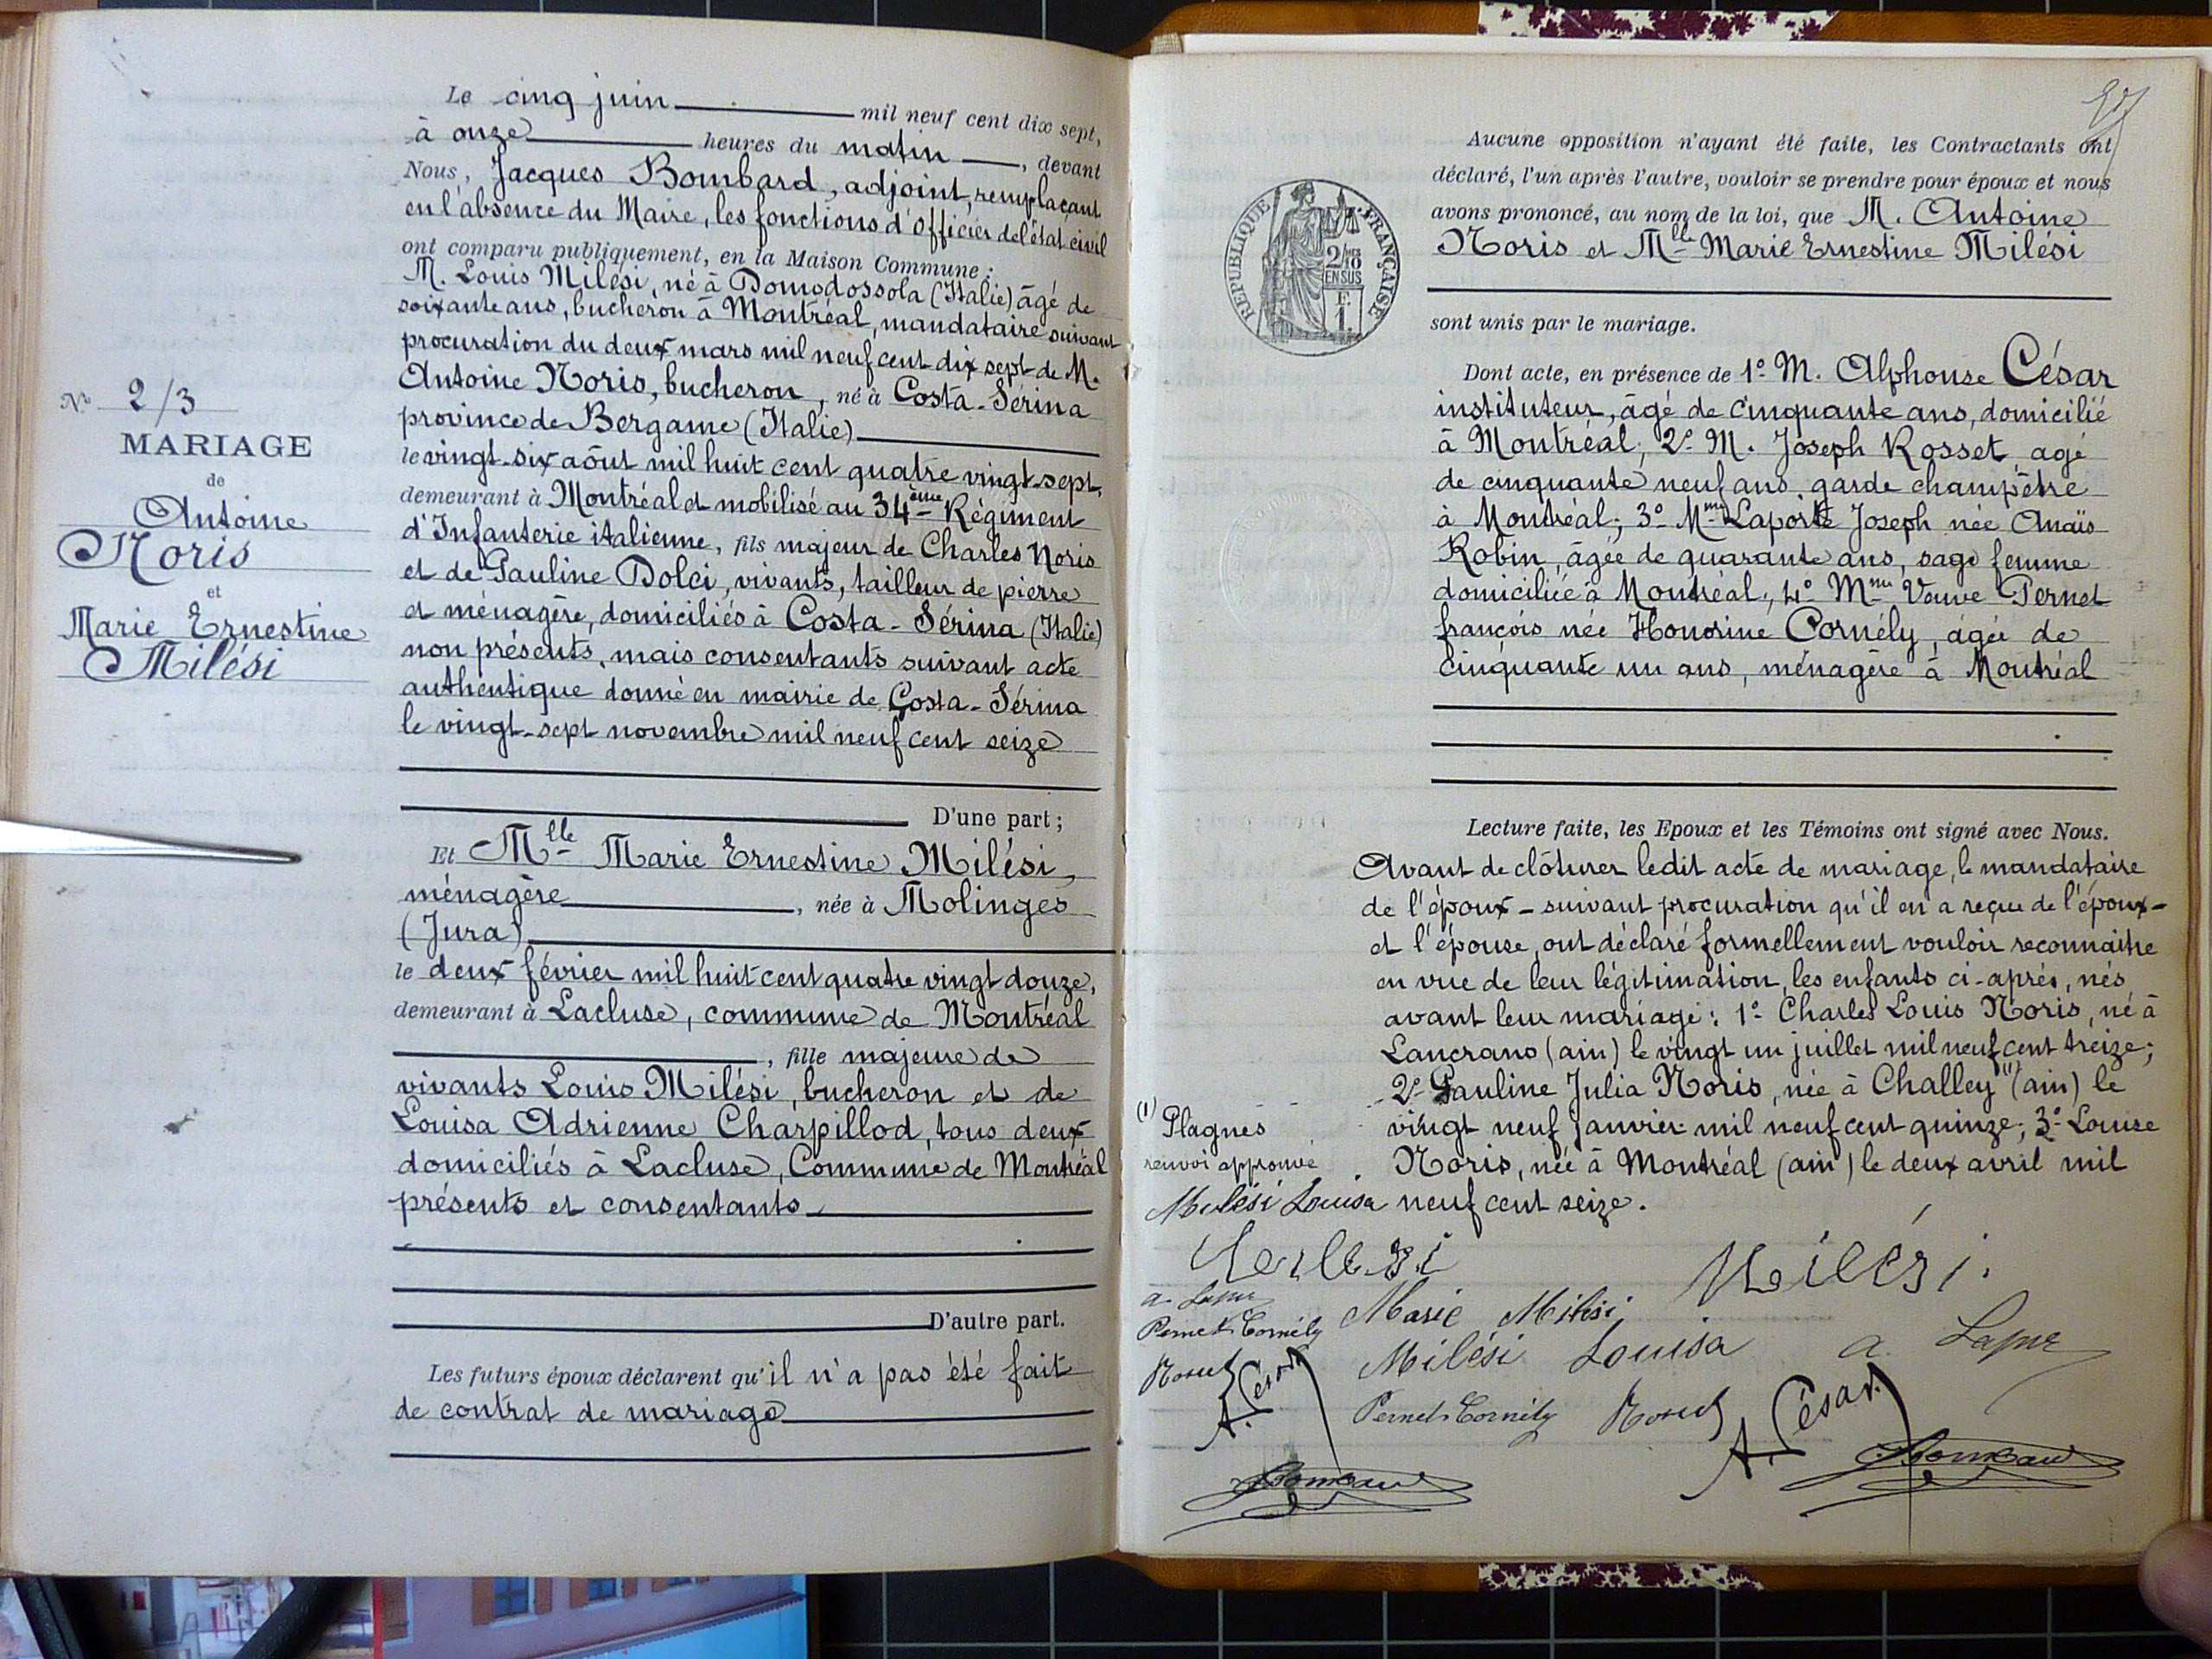 Le cinq juin mil neuf cent dix sept,
à onze heures du matin, devant
Nous, Jacques Bombard, adjoint, remplaçant
en l'absence du Maire, les fonctions d'Officier de l'état civil
ont comparu publiquement, en la Maison Commune :
M. Louis Milési, né à Domodossola (Italie) âgé de
soixante ans, bucheron à Montréal, mandataire suivant
procuration du deux mars mil neuf cent dix sept de M.
Antoine Noris, bucheron, né à Costa-Sérina
province de Bergame (Italie)
le vingt-six aôut mil huit cent quatre vingt-sept,
demeurant à Montréal et mobilisé au 34ème Régiment
d'Infanterie italienne, fils majeur de Charles Noris
et de Pauline Dolci, vivants, tailleur de pierre
et ménagère, domiciliés à Costa-Sérina (Italie)
non présents, mais consentants suivant acte
authentique donné en mairie de Costa-Sérina
le vingt-sept novembre mil neuf cent seize
D'une part ;
N° 2/3
MARIAGE
de
Antoine
Noris
et
Marie Ernestine
Milési
Et Mlle Marie Ernestine Milési,
ménagère, née à Molinges
(Jura)
le deux février mil huit cent quatre vingt douze,
demeurant à Lacluse, commune de Montréal
, fille majeure de
vivants Louis Milési, bucheron et de
Louisa Adrienne Charpillod, tous deux
domiciliés à Lacluse, Commune de Montréal
présents et consentants
D'autre part.
Les futurs époux déclarent qu'il n'a pas été fait
de contrat de mariage
Aucune opposition n'ayant été faite, les Contractants ont
déclaré, l'un après l'autre, vouloir se prendre pour époux et nous
avons prononcé, au nom de la loi, que M. Antoine
Noris et Mlle Marie Ernestine Milési
sont unis par le mariage.
REPUBLIQUE FRANÇAISE
2/10
EN SUS
F.
1.
Dont acte, en présence de 1° M. Alphonse César
instituteur, âgé de cinquante ans, domicilié
à Montréal; 2° M. Joseph Rosset, agé
de cinquante neuf ans, garde champêtre
à Montréal; 3° Mme Laporte Joseph née Anaïs
Robin, âgée de quarante ans, sage femme
domiciliée à Montréal; 4° Mme Veuve Pernet
françois née Honorine Cornély, âgée de
cinquante un ans, ménagère à Montréal
Lecture faite, les Epoux et les Témoins ont signé avec Nous.
Avant de clôturer ledit acte de mariage, le mandataire
de l'époux - suivant procuration qu'il en a reçue de l'époux -
et l'épouse, ont déclaré formellement vouloir reconnaitre
en vue de leur légitimation, les enfants ci-après, nés
avant leur mariage : 1° Charles Louis Noris, né à
Lancrans (ain) le vingt un juillet mil neuf cent treize;
2° Pauline Julia Noris, née à Challey (1) (ain) le
vingt neuf janvier mil neuf cent quinze; 3° Louise
Noris, née à Montréal (ain) le deux avril mil
neuf cent seize.
(1) Plagnes
renvoi approuvé
Milési Louisa
Milési.
Marie Milési
Milési Louisa
Pernet Cornély
Pernet Cornély
A. César
A. César